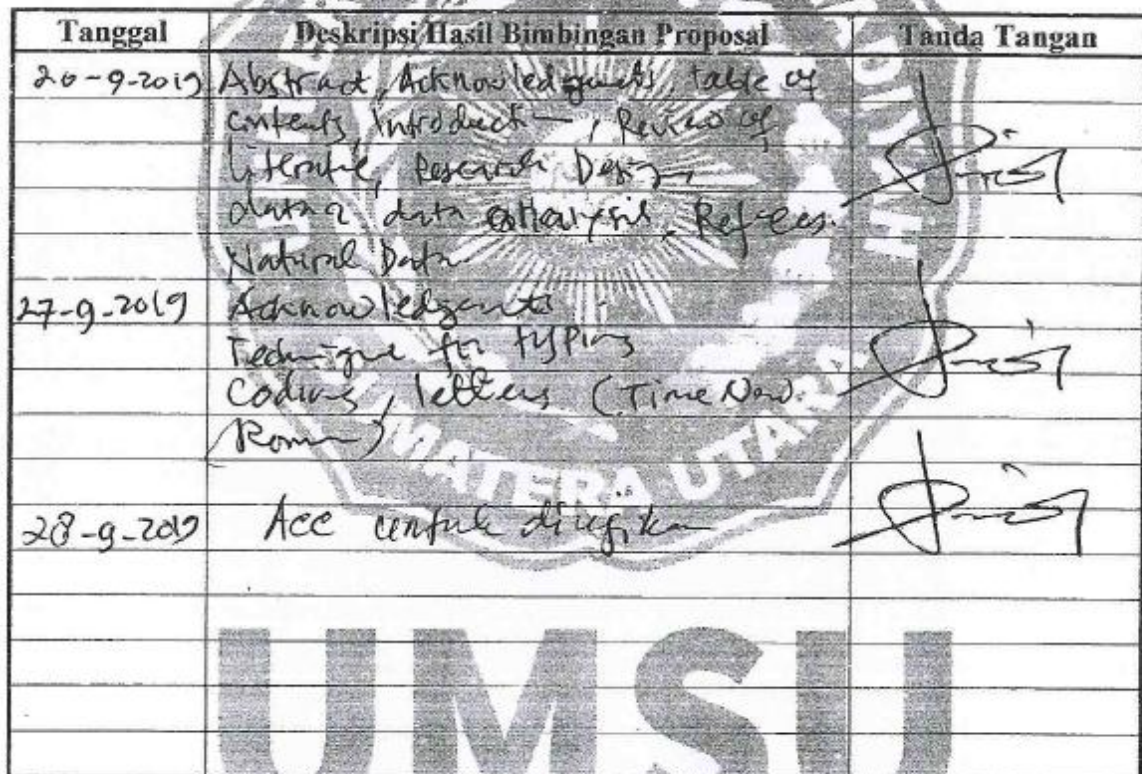 Tanggal Deskripsi Hasil Bimbingan Proposal Tanda Tangan
20-9-2019 Abstract, Acknowledgments, table of
contents, Introduction, Review of
literature, Research Design
data & data analysis, References.
Natural Data
27-9-2019 Acknowledgments
Technique for typing
Coding, letters (Time New
Roman)
28-9-2019 Acc untuk
MATERA UTARA
UMSU